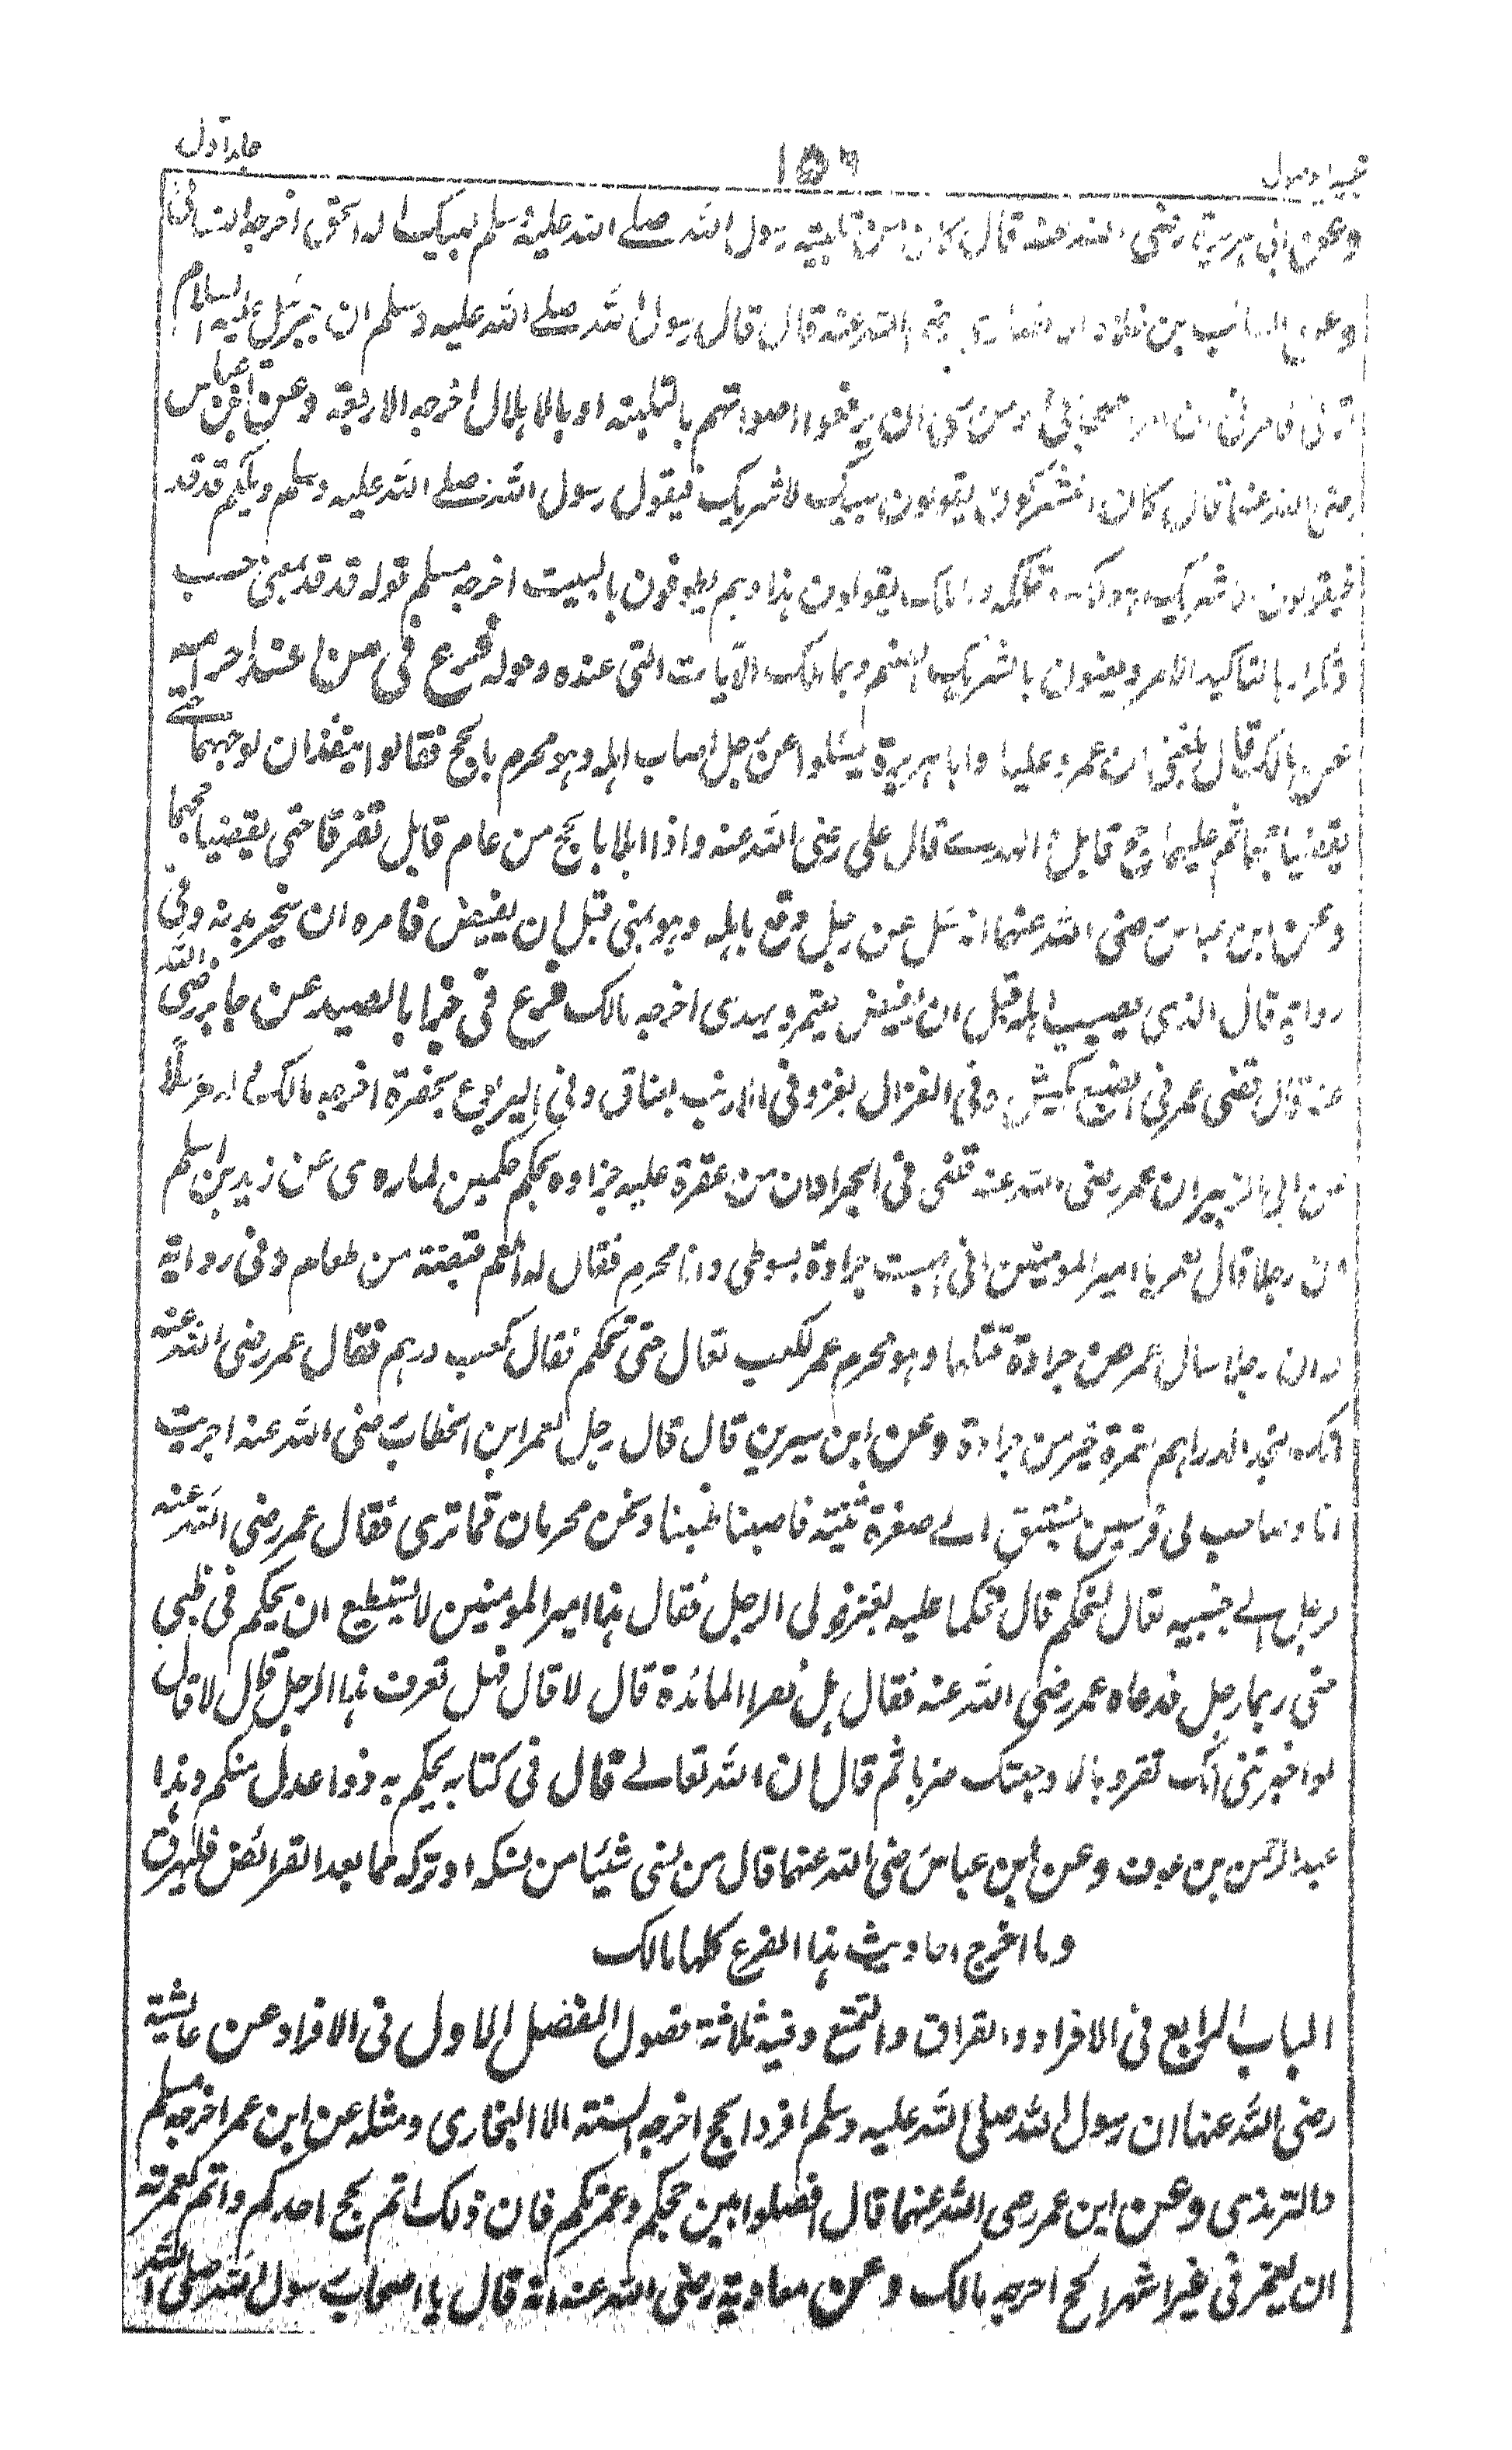 جلد اول
۱۵۶
تيسير الوصول
وعن ابى هريرة رضى الله عنه قال كان من تلبية رسول الله صلے الله عليه وسلم لبيك اله الحق اخرجه النسائى
وعن السائب بن خلاد الانصارى رضى الله عنه قال قال رسول الله صلے الله عليه وسلم ان جبرئيل عليه السلام
اتانى فامرنى ان امر اصحابى ومن معى ان يرفعوا اصواتهم بالتلبية او بالاهلال اخرجه الاربعة وعن ابن عباس
رضى الله عنهما قال كان المشركون يقولون لبيك لا شريك فيقول رسول الله صلے الله عليه وسلم ويلكم قد قد
فيقولون الا شريك هو لك تملكه وما ملك يقولون هذا وهم يطوفون بالبيت اخرجه مسلم قوله قد قد بمعنى حسب
وتكرارها لتاكيد الامر ويعنون بالشريك الصنم وبما ملك الآيات التى عنده وحوله فرع فى من افسد احرامه
عن مالك قال بلغنى ان عمر وعليا وابا هريرة سئلوا عن رجل اصاب اهله وهو محرم بالحج فقالوا ينفذان لوجههما حتے
يقضيا حجهما ثم عليهما حج قابل والهدے قال على رضى الله عنه واذا اهلا بالحج من عام قابل تفرقا حتى يقضيا حجهما
وعن ابن عباس رضى الله عنهما انه سئل عن رجل وقع باهله وهو بمنى قبل ان يفيض فامره ان ينحر بدنه وفى
رواية قال الذى يصيب اهله قبل ان يفيض يعتمر ويهدى اخرجه مالك فرع فى جزاء الصيد عن جابر رضى الله
عنه قال قضى عمر فى الضبع بكبش وفى الغزال بعنز وفى الارنب بعناق وفى اليربوع بجفرة اخرجه مالك
عن ابى الزبير ان عمر رضى الله عنه قضى فى الجراد ان من عقرة عليه جزاوه بحكم حكمين لما روى عن زيد بن اسلم
ان رجلا قال لعمر يا امير المومنين انى اصبت جرادة بسوطى وانا محرم فقال له اطعم قبضة من طعام وفى رواية
ان رجلا سال عمر عن جرادة قتلها وهو محرم عمر لكعب تعال حتى نحكم فقال كعب درهم فقال عمر رضى الله عنه
انك لتجد الدراهم تمرة خير من جرادة وعن ابن سيرين قال قال رجل لعمر ابن الخطاب رضى الله عنه اجريت
انا وصاحب لى فرسين نستبق الے صغرة ثنية فاصبنا ظبيا ونحن محرمان فما ترى فقال عمر رضى الله عنه
رجل الے جنبيه تعال لنحكم قال فحكما عليه بعنز فولى الرجل فقال هذا امير المومنين لا يستطيع ان يحكم فى ظبى
حتى ربما رجل فدعاه عمر رضى الله عنه فقال هل تقرا المائدة قال لا قال فهل تعرف هذا الرجل قال لا قال
لو اخبرتنى انك تقروها لاوجعتك ضربا ثم قال ان الله تعالے قال فى كتابه يحكم به ذوا عدل منكم وهذا
عبد الرحمن بن عوف وعن ابن عباس رضى الله عنهما قال من نسى شيئا من نسكه او تركه مما بعد الفرائض فليهرق
دما اخرج احاديث هذا الفرع كلها مالك
الباب الرابع فى الافراد والقران والتمتع وفيه ثلاثة فصول الفصل الاول فى الافراد عن عائشة
رضى الله عنها ان رسول الله صلى الله عليه وسلم افرد الحج اخرجه الستة الا البخارى ومثله عن ابن عمر اخرجه مسلم
والترمذى وعن ابن عمر رضى الله عنهما قال افصلوا بين حجكم وعمرتكم فان ذلك اتم لحج احدكم واتم لعمرته
ان يعتمر فى غير اشهر الحج اخرجه مالك وعن معاوية رضى الله عنه انه قال يا اصحاب رسول الله صلى الله